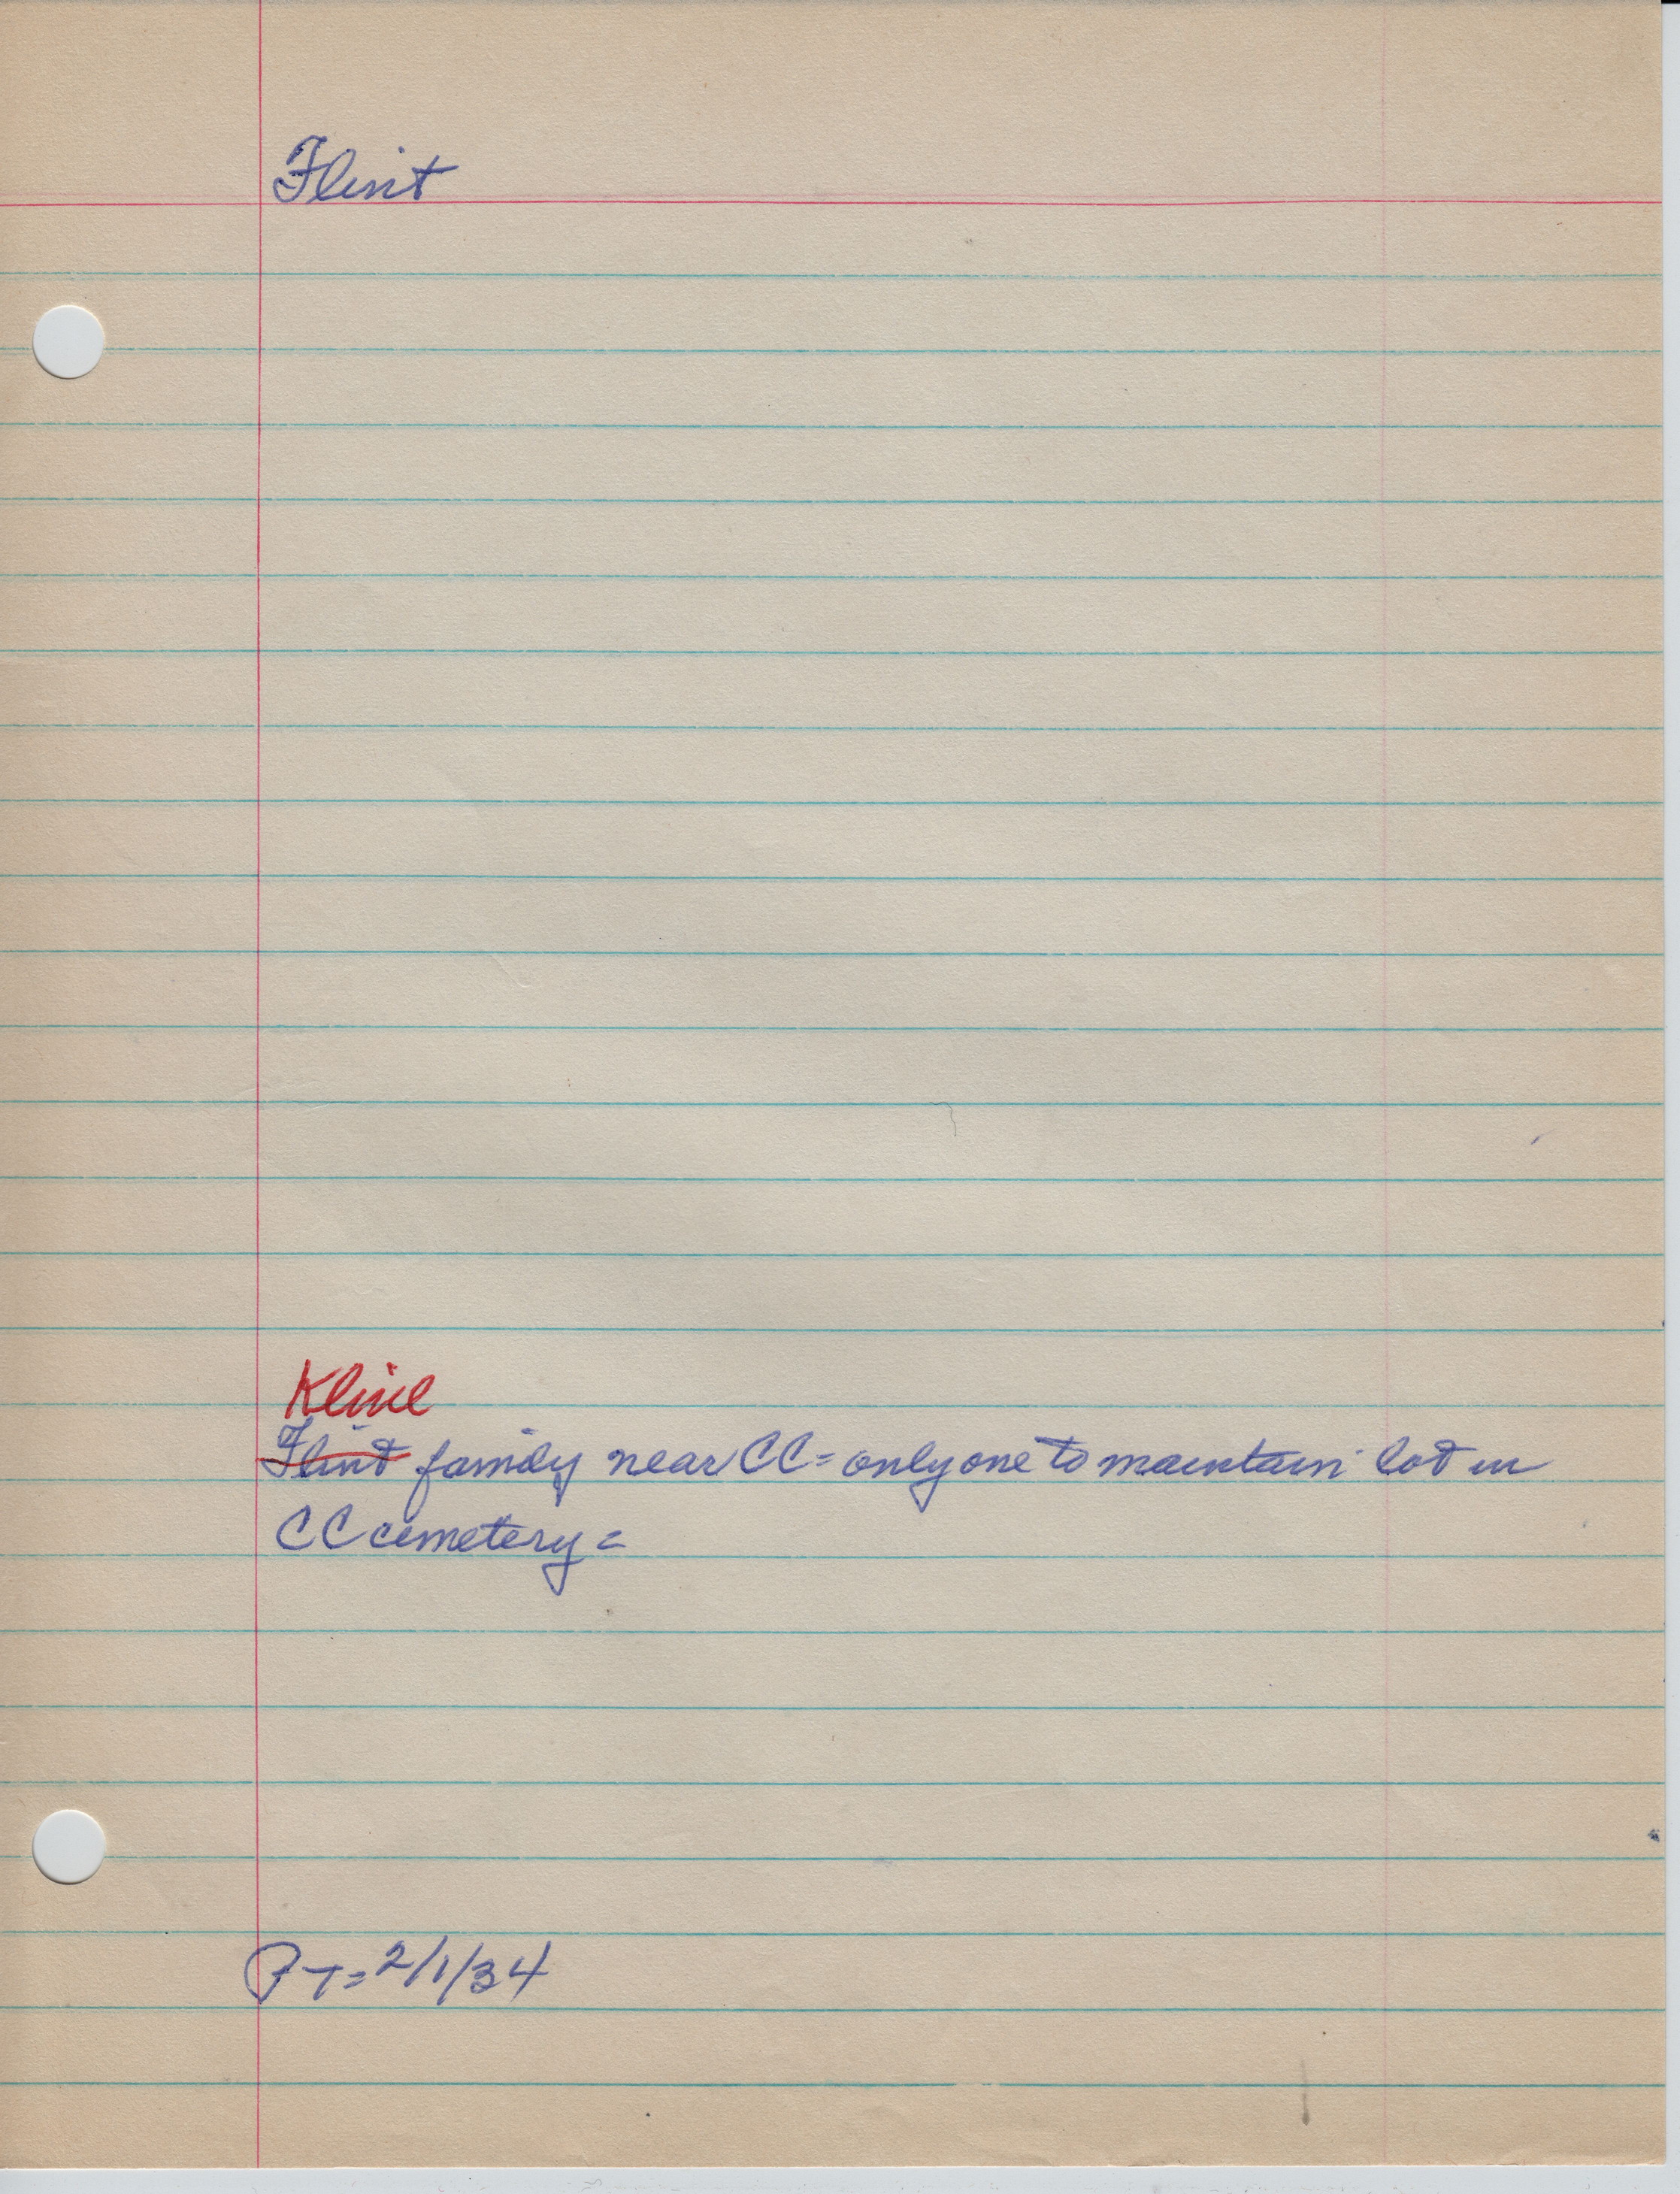 Flint
Kline
Flint family near CC = only one to maintain lot in
CC cemetery =
PT = 2/1/34